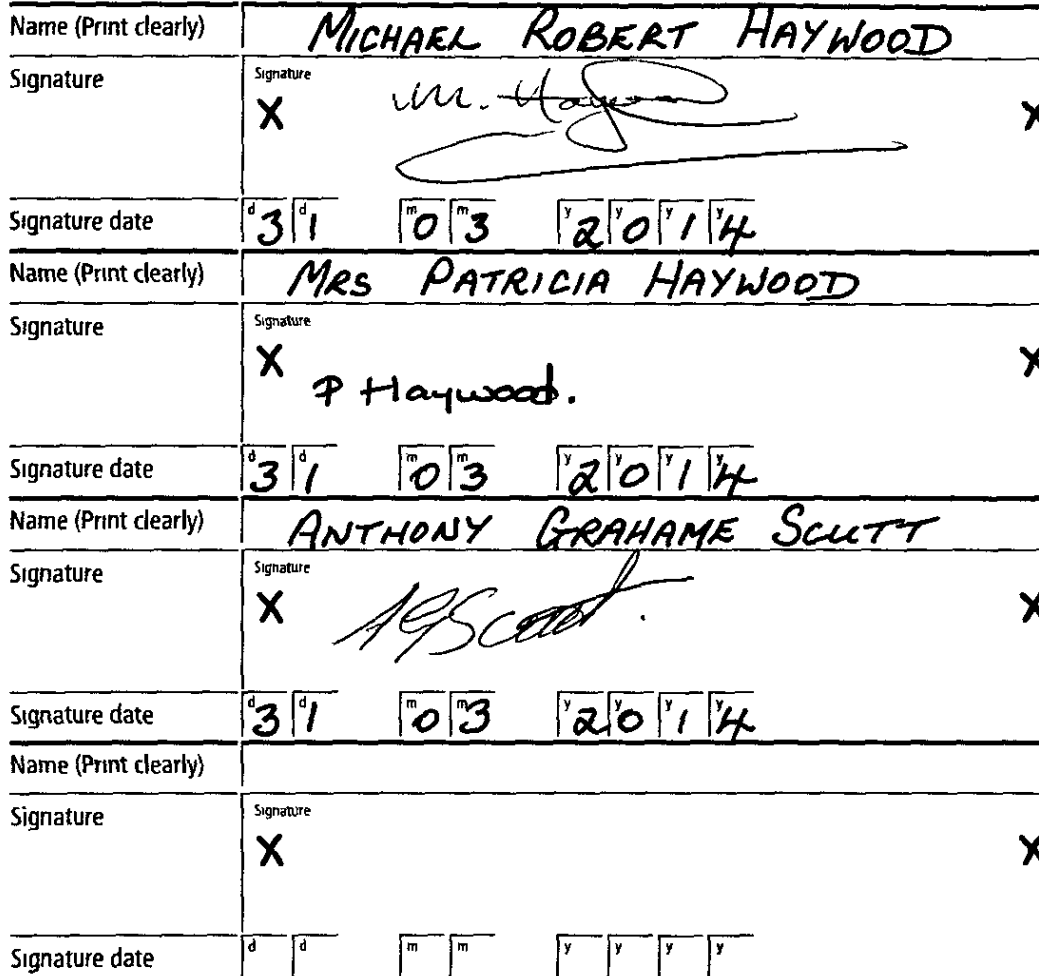 Name (Print clearly) MICHAEL ROBERT HAYWOOD
Signature Signature
X M. Hayw X
Signature date d3 d1 m0 m3 y2 y0 y1 y4
Name (Print clearly) MRS PATRICIA HAYWOOD
Signature Signature
X P Haywood. X
Signature date d3 d1 m0 m3 y2 y0 y1 y4
Name (Print clearly) ANTHONY GRAHAME SCUTT
Signature Signature
X AGScutt. X
Signature date d3 d1 m0 m3 y2 y0 y1 y4
Name (Print clearly)
Signature Signature
X X
Signature date d d m m y y y y